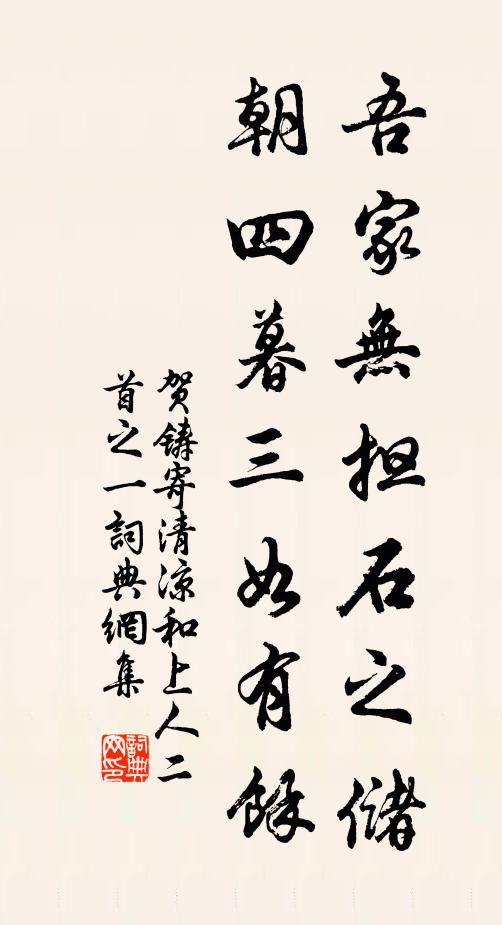 吾家無担石之儲
朝四暮三如有餘
賀鑄寄清凉和上人二
首之一詞典網集
詞典
网印